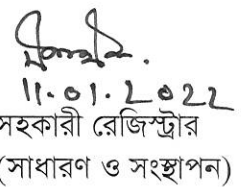 11.01.2022
সহকারী রেজিস্ট্রার
(সাধারণ ও সংস্থাপন)